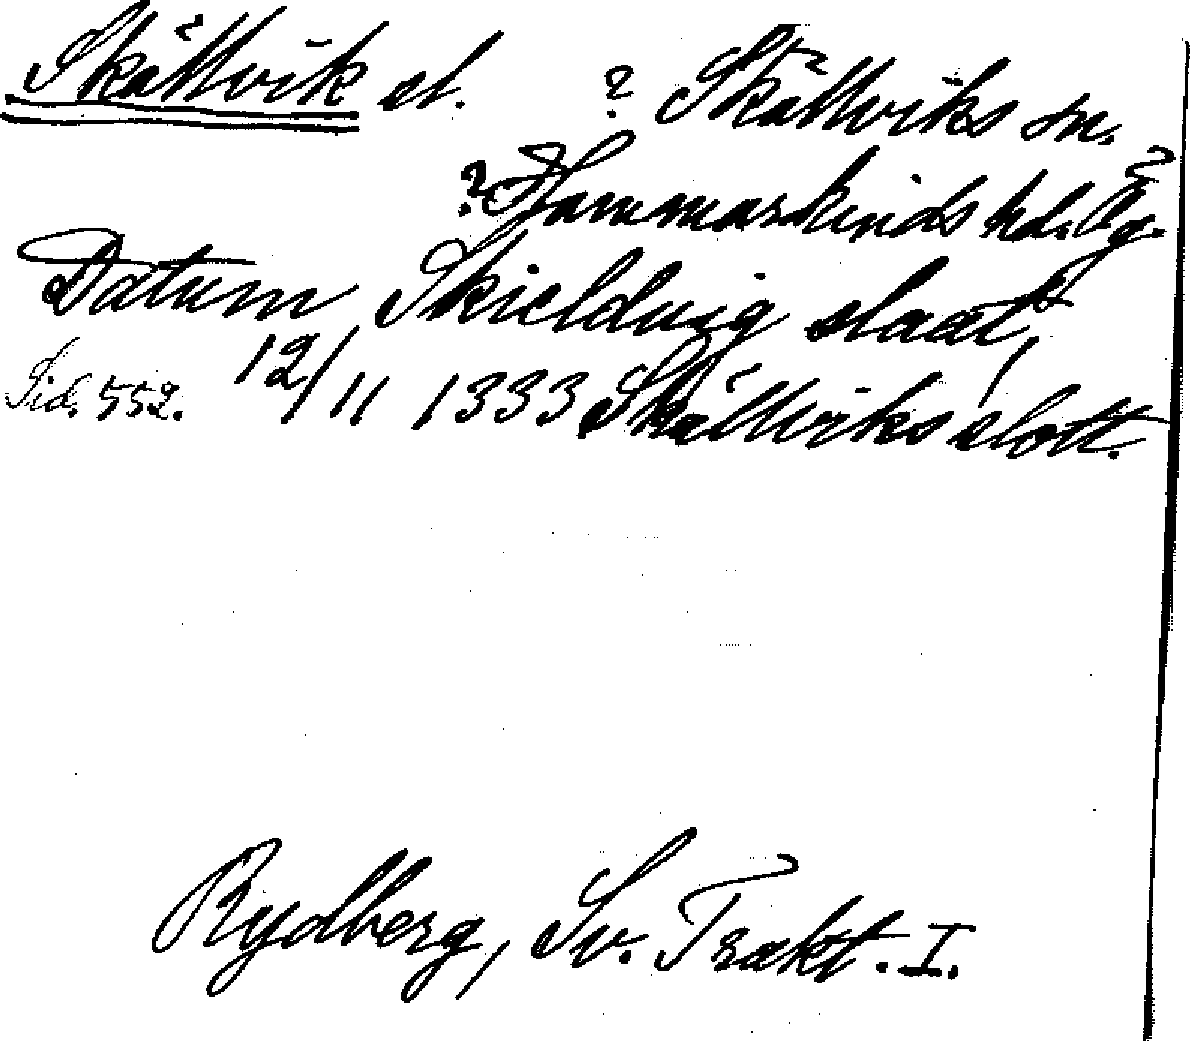 Skällvik sl. ? Skällviks sn.
? Hammarkinds hd. Ög. ?
Datum Skieldvig slaat,
Sid. 552. 12/11 1333 Skällviks slott.
Rydberg, Sv. Trakt. I.